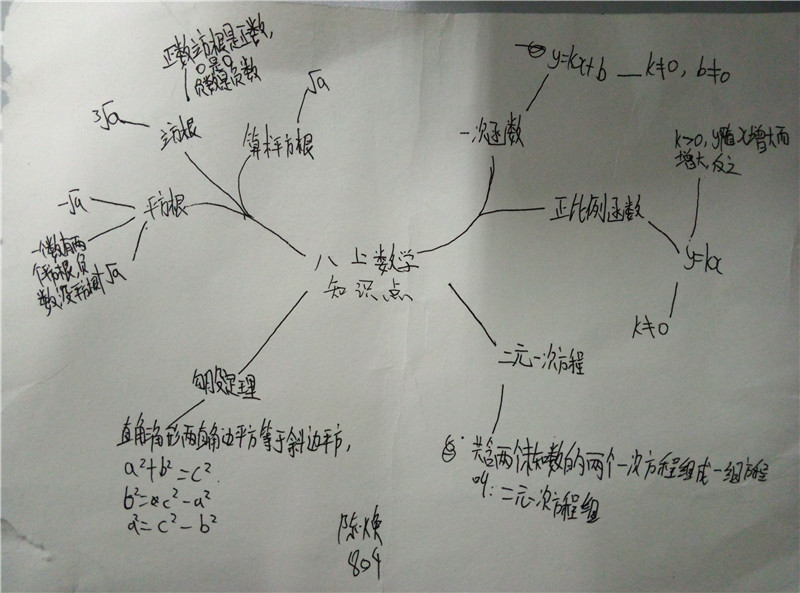 正数立方根是正数,
0是0
负数是负数
³√a
立方根
√a
算术平方根
-√a
平方根
一个数有两
个平方根,负
数没平方根
√a
八上数学
知识点
y=kx+b — k≠0, b≠0
一次函数
k>0, y随x增大而
增大,反之
正比例函数
y=kx
k≠0
二元一次方程
共含两个未知数的两个一次方程组成一组方程
叫:二元一次方程组
勾股定理
直角三角形两直角边平方等于斜边平方,
a²+b²=c².
b²=c²-a²
a²=c²-b²
陈焕
804